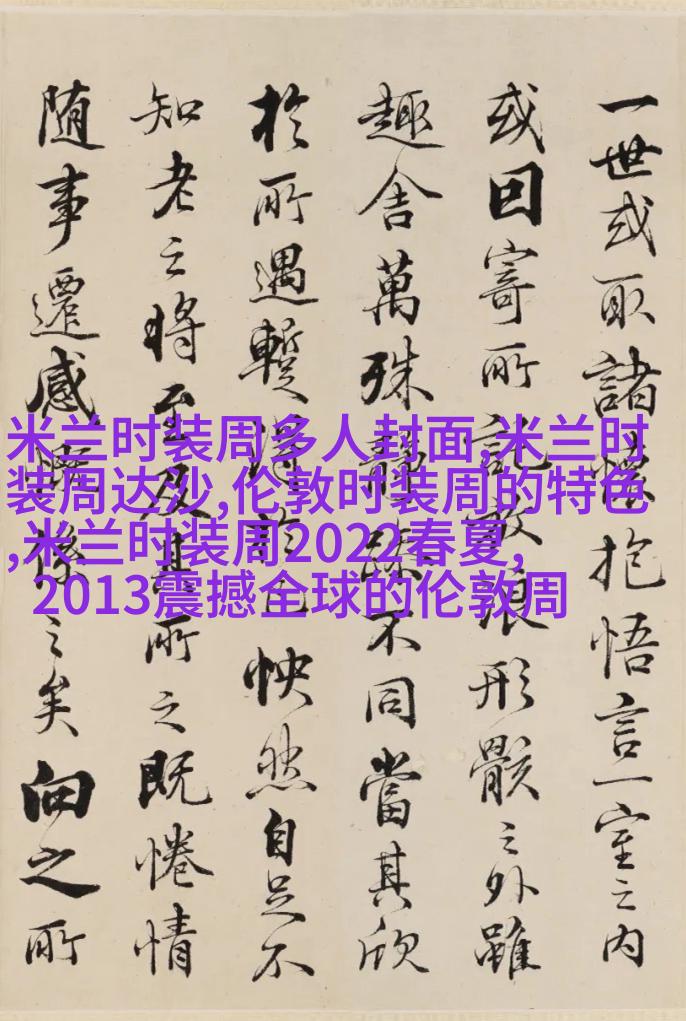 一世或取諸懷抱悟言一室之内
或囙寄所託放浪形骸之外雖
趣舍萬殊靜躁不同當其欣
於所遇暫得於己怏然自足不
知老之將至及其所之既惓情
随事遷感慨係之矣向之所
米兰时装周多人封面,米兰时
装周达沙,伦敦时装周的特色
,米兰时装周2022春夏,
2013震撼全球的伦敦周